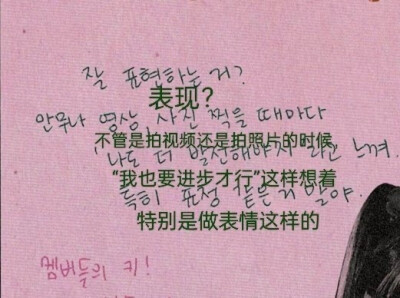 잘 표현하는 거?
表现?
안무나 영상, 사진 찍을 때마다
不管是拍视频还是拍照片的时候
'나도 더 발전해야지'라고 느껴.
“我也要进步才行”这样想着
특히 표정 같은 거 말야.
特别是做表情这样的
멤버들의 키!